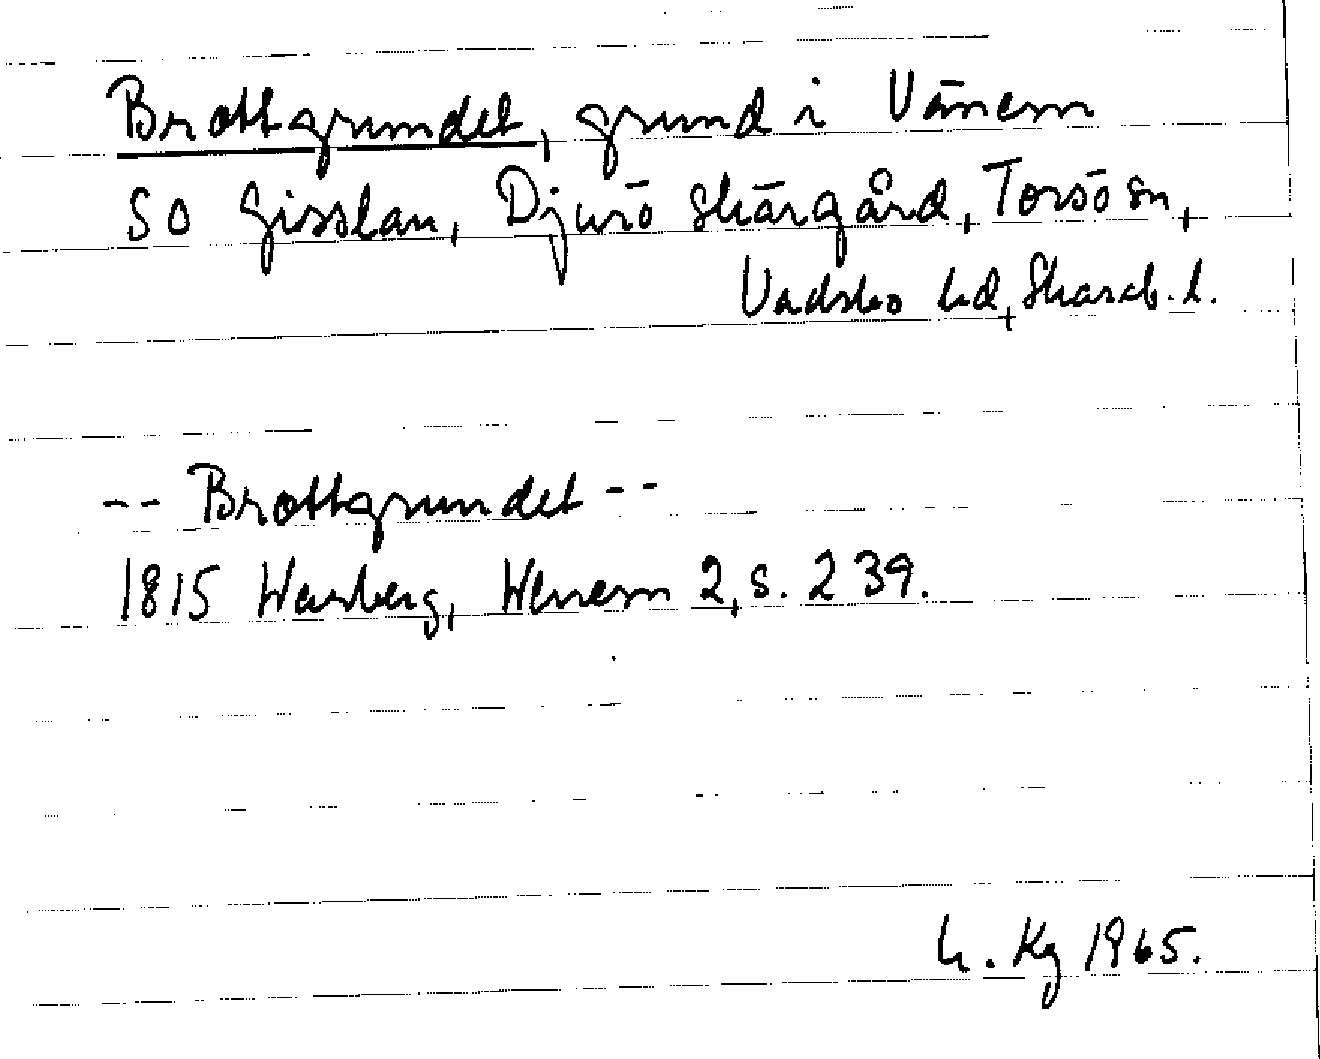 Brottgrundet, grund i Vänern
SO Gisslan, Djurö skärgård, Torsö sn,
Vadsbo hd, Skarab. l.
-- Brottgrundet --
1815 Warberg, Wenern 2, s. 239.
h. Kg 1965.